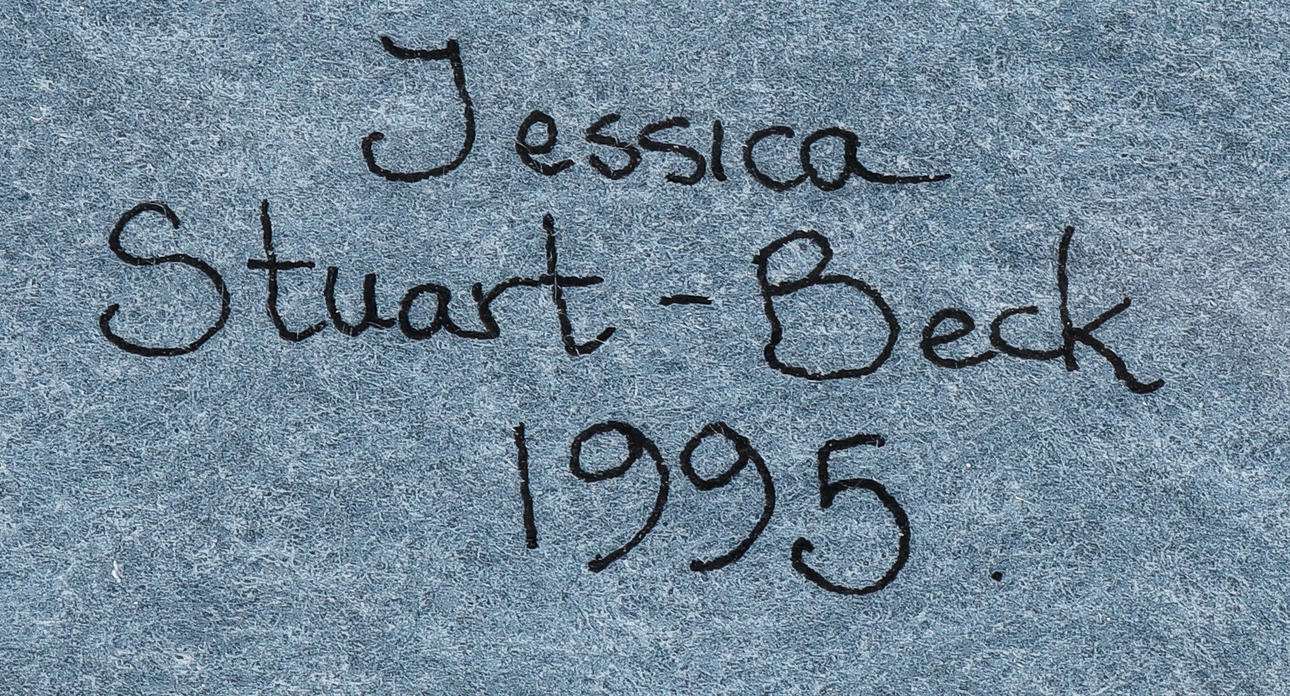 Jessica
Stuart-Beck
1995.